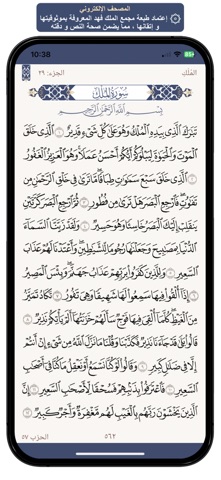 المصحف الإلكتروني
إعتماد طبعة مجمع الملك فهد المعروفة بموثوقيتها
و إتقانها ، مما يضمن صحة النص و دقته
10:38
المُلك
الجزء: ٢٩
سُورَةُ المُلْكِ
بِسْمِ اللَّهِ الرَّحْمَٰنِ الرَّحِيمِ
تَبَارَكَ الَّذِي بِيَدِهِ الْمُلْكُ وَهُوَ عَلَىٰ كُلِّ شَيْءٍ قَدِيرٌ ١ الَّذِي خَلَقَ
الْمَوْتَ وَالْحَيَاةَ لِيَبْلُوَكُمْ أَيُّكُمْ أَحْسَنُ عَمَلًا وَهُوَ الْعَزِيزُ الْغَفُورُ
٢ الَّذِي خَلَقَ سَبْعَ سَمَاوَاتٍ طِبَاقًا مَّا تَرَىٰ فِي خَلْقِ الرَّحْمَٰنِ مِن
تَفَاوُتٍ فَارْجِعِ الْبَصَرَ هَلْ تَرَىٰ مِن فُطُورٍ ٣ ثُمَّ ارْجِعِ الْبَصَرَ كَرَّتَيْنِ
يَنقَلِبْ إِلَيْكَ الْبَصَرُ خَاسِئًا وَهُوَ حَسِيرٌ ٤ وَلَقَدْ زَيَّنَّا السَّمَاءَ
الدُّنْيَا بِمَصَابِيحَ وَجَعَلْنَاهَا رُجُومًا لِّلشَّيَاطِينِ وَأَعْتَدْنَا لَهُمْ عَذَابَ
السَّعِيرِ ٥ وَلِلَّذِينَ كَفَرُوا بِرَبِّهِمْ عَذَابُ جَهَنَّمَ وَبِئْسَ الْمَصِيرُ
٦ إِذَا أُلْقُوا فِيهَا سَمِعُوا لَهَا شَهِيقًا وَهِيَ تَفُورُ ٧ تَكَادُ تَمَيَّزُ
مِنَ الْغَيْظِ كُلَّمَا أُلْقِيَ فِيهَا فَوْجٌ سَأَلَهُمْ خَزَنَتُهَا أَلَمْ يَأْتِكُمْ نَذِيرٌ
٨ قَالُوا بَلَىٰ قَدْ جَاءَنَا نَذِيرٌ فَكَذَّبْنَا وَقُلْنَا مَا نَزَّلَ اللَّهُ مِن شَيْءٍ إِنْ أَنتُمْ
إِلَّا فِي ضَلَالٍ كَبِيرٍ ٩ وَقَالُوا لَوْ كُنَّا نَسْمَعُ أَوْ نَعْقِلُ مَا كُنَّا فِي أَصْحَابِ
السَّعِيرِ ١٠ فَاعْتَرَفُوا بِذَنبِهِمْ فَسُحْقًا لِّأَصْحَابِ السَّعِيرِ ١١ إِنَّ
الَّذِينَ يَخْشَوْنَ رَبَّهُم بِالْغَيْبِ لَهُم مَّغْفِرَةٌ وَأَجْرٌ كَبِيرٌ ١٢
٥٦٢
الحزب ٥٧